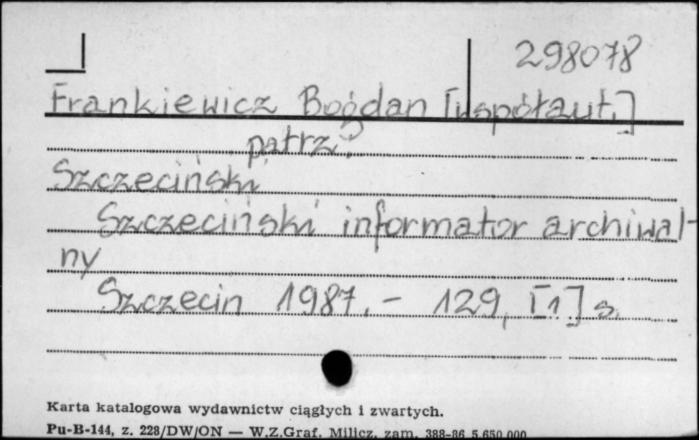 298078
Frankiewicz Bogdan [współaut.]
patrz:
Szczeciński
Szczeciński informator archiwal-
ny
Szczecin 1987. - 129, [1] s.
Karta katalogowa wydawnictw ciągłych i zwartych.
Pu-B-144, z. 228/DW/ON — W.Z.Graf. Milicz, zam. 388-86 5.650.000